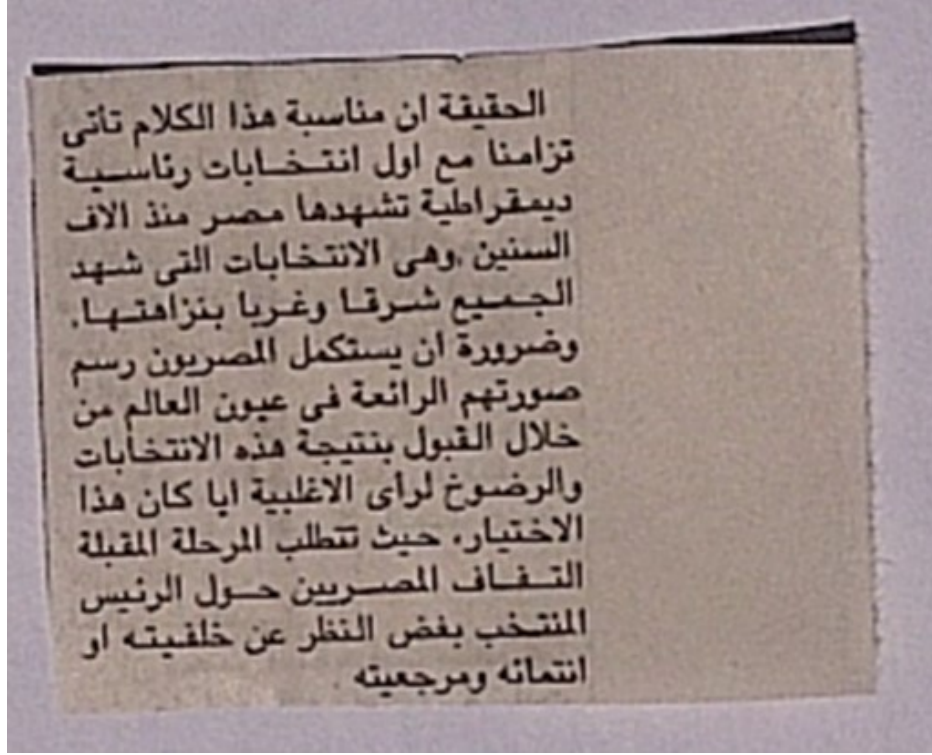 الحقيقة ان مناسبة هذا الكلام تأتى
تزامنا مع اول انتخابات رئاسية
ديمقراطية تشهدها مصر منذ الاف
السنين .وهى الانتخابات التى شهد
الجميع شرقا وغربا بنزاهتها.
وضرورة ان يستكمل المصريون رسم
صورتهم الرائعة فى عيون العالم من
خلال القبول بنتيجة هذه الانتخابات
والرضوخ لرأى الاغلبية ايا كان هذا
الاختيار. حيث تتطلب المرحلة المقبلة
التفاف المصريين حول الرئيس
المنتخب بغض النظر عن خلفيته او
انتمائه ومرجعيته .